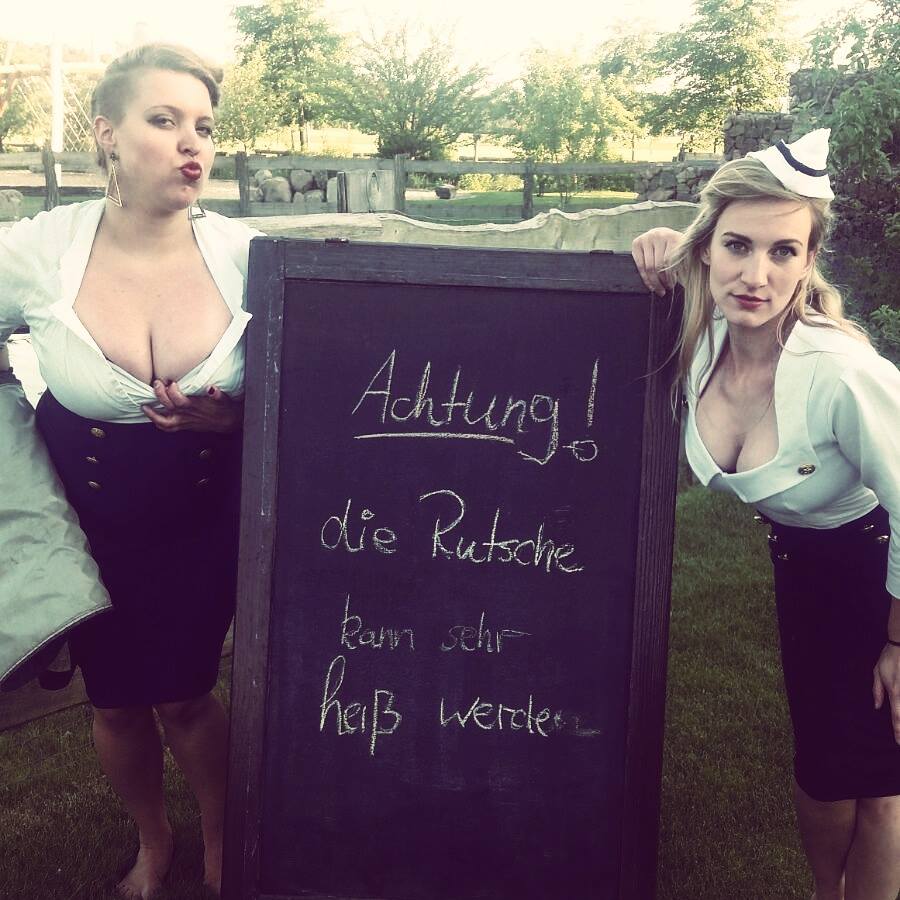 Achtung!
die Rutsche
kann sehr
heiß werden